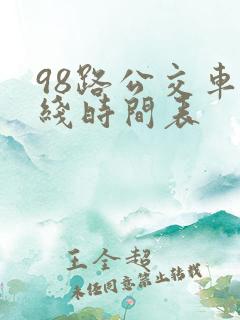 98路公交車
綫時間表
王全超
未经同意禁止转载